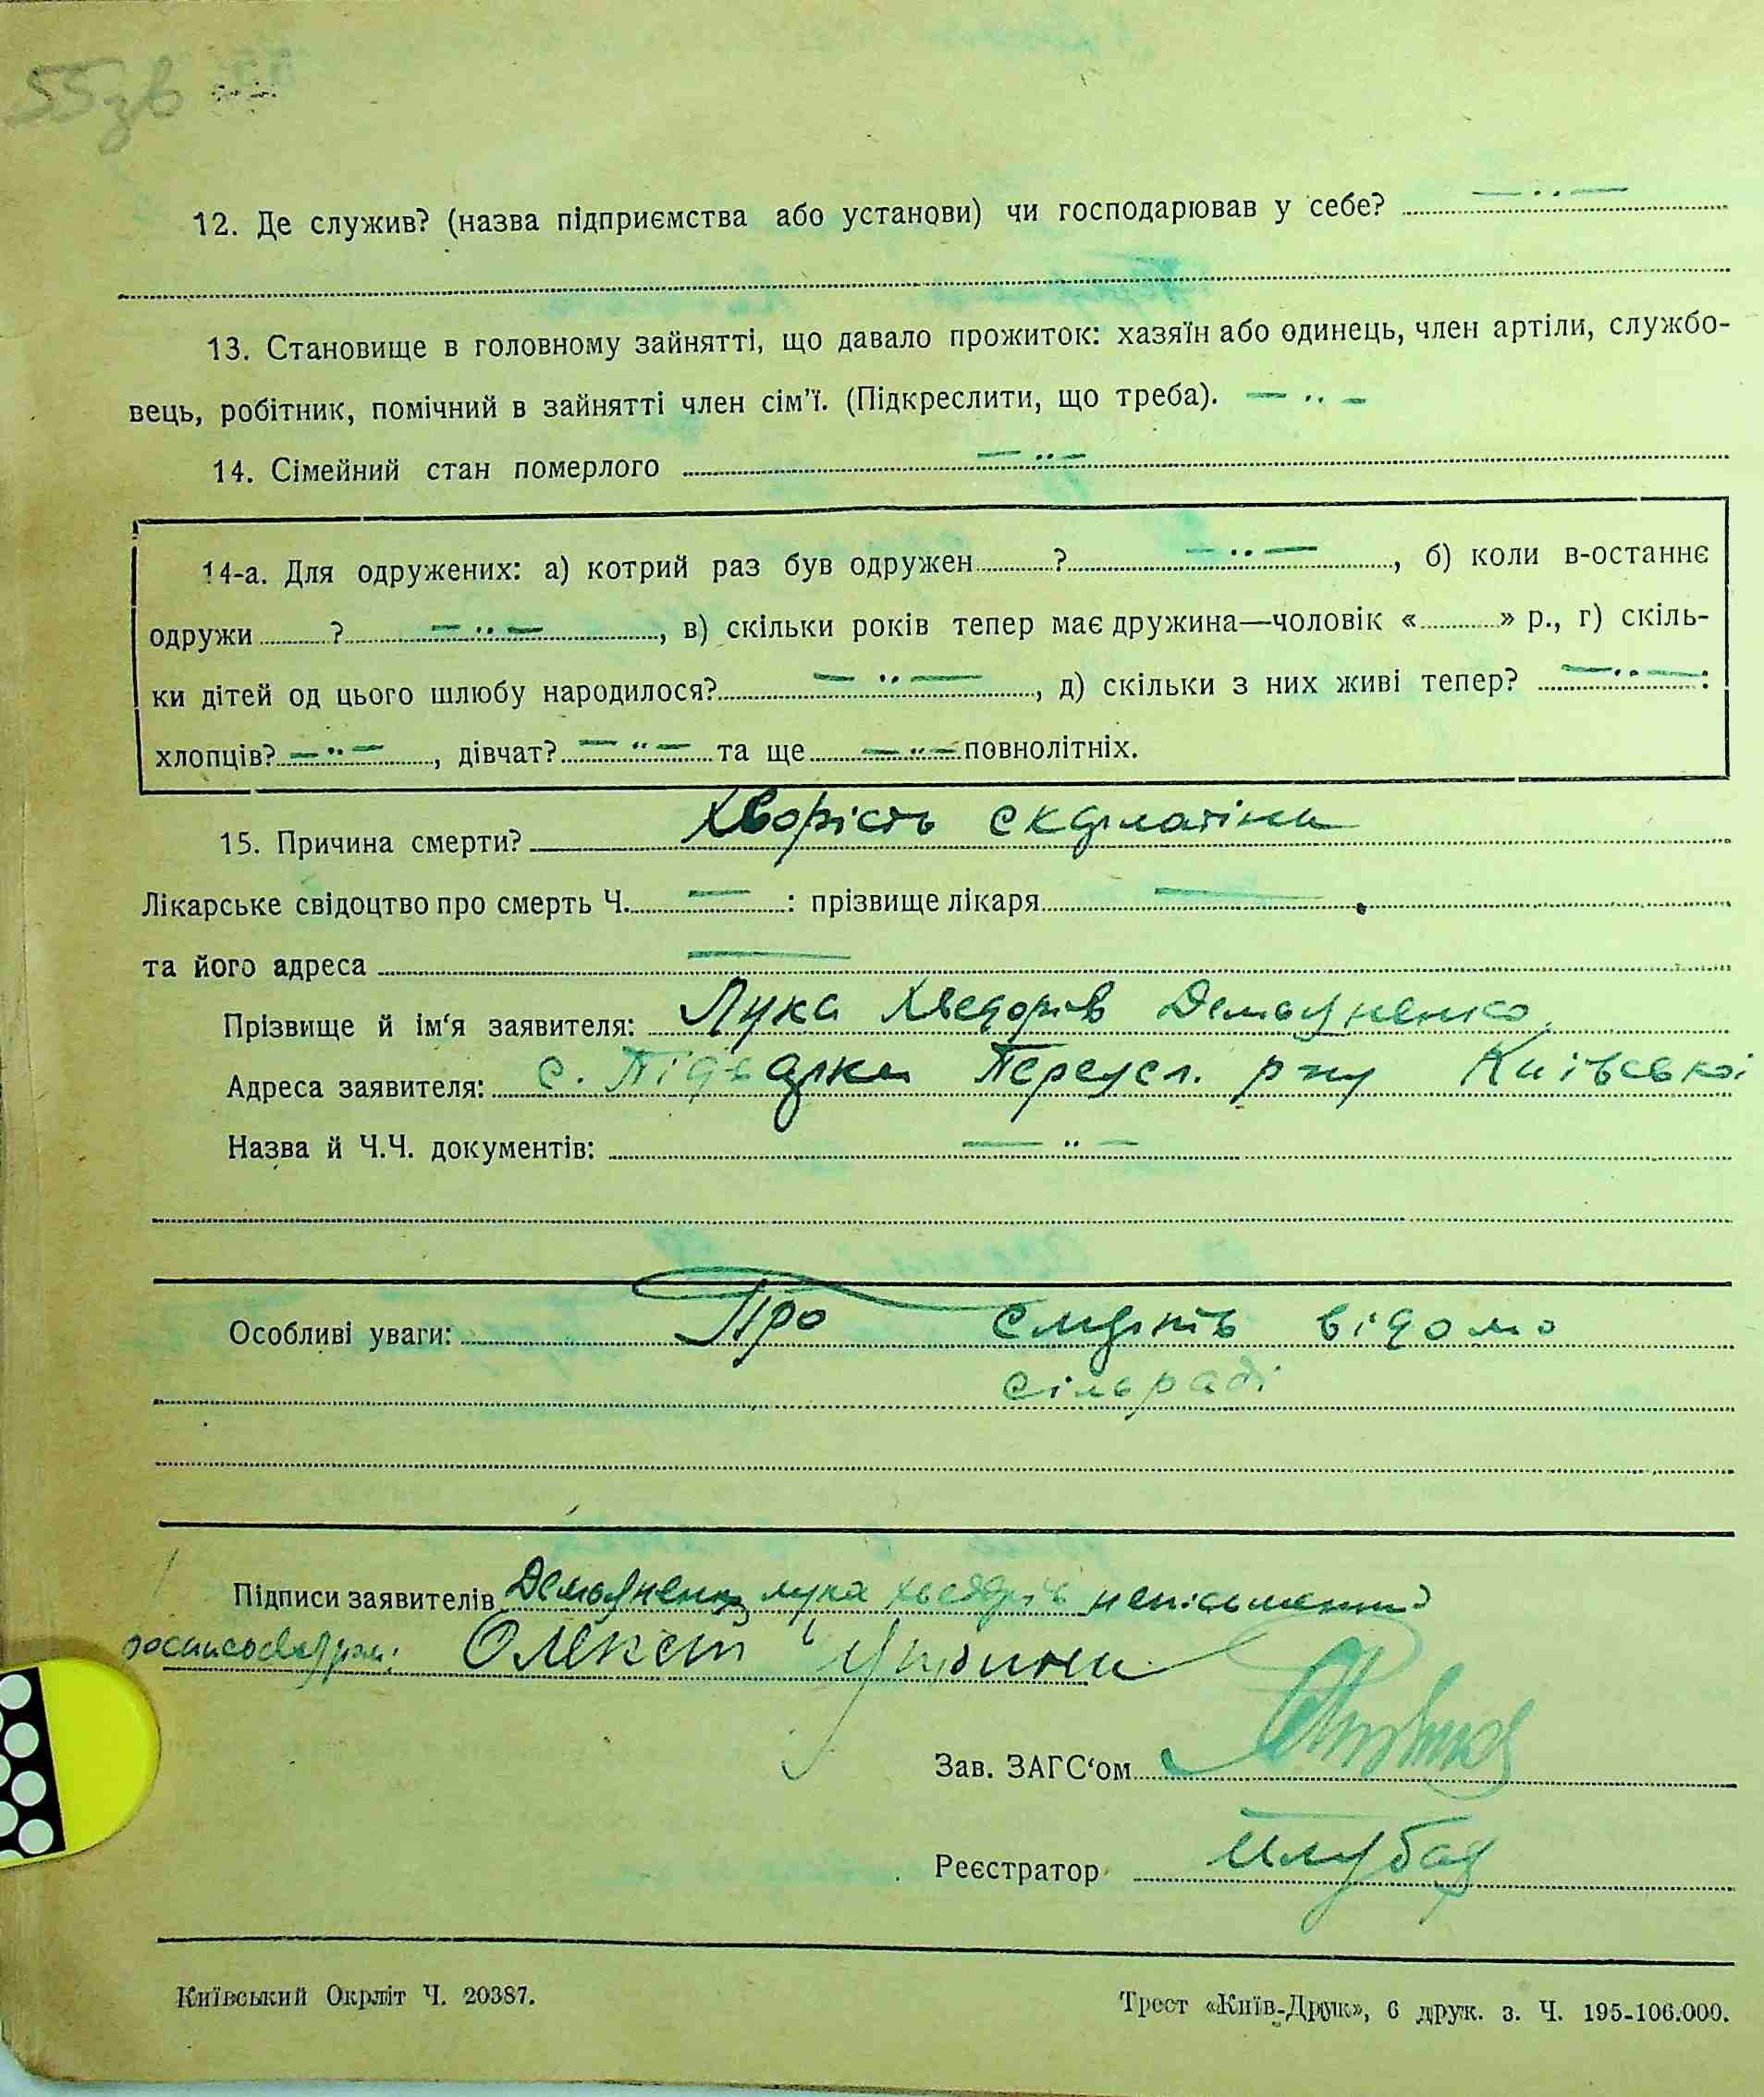 55зв
12. Де служив? (назва підприємства або установи) чи господарював у себе? — ·· —
13. Становище в головному зайнятті, що давало прожиток: хазяїн або одинець, член артіли, службо-
вець, робітник, помічний в зайнятті член сім'ї. (Підкреслити, що треба). — ·· —
14. Сімейний стан померлого — ·· —
14-а. Для одружених: а) котрий раз був одружен ? — ·· —, б) коли в-останнє
одружи ? — ·· —, в) скільки років тепер має дружина—чоловік « » р., г) скіль-
ки дітей од цього шлюбу народилося? — ·· —, д) скільки з них живі тепер? — ·· — :
хлопців? — ·· —, дівчат? — ·· — та ще — ·· — повнолітніх.
15. Причина смерти? Хворість скарлатіна
Лікарське свідоцтво про смерть Ч. — : прізвище лікаря —
та його адреса —
Прізвище й ім'я заявителя: Лука Хведорів Демьяненко
Адреса заявителя: с. Підварки Переясл. р-ну Київської
Назва й Ч.Ч. документів: — ·· —
Особливі уваги: Про смерть відомо
сільраді
Підписи заявителів Демьяненко лука хведорів неписьменний
Олексій
Зав. ЗАГС'ом
Реєстратор
Київський Окрліт Ч. 20387.
Трест «Київ-Друк», 6 друк. з. Ч. 195-106.000.